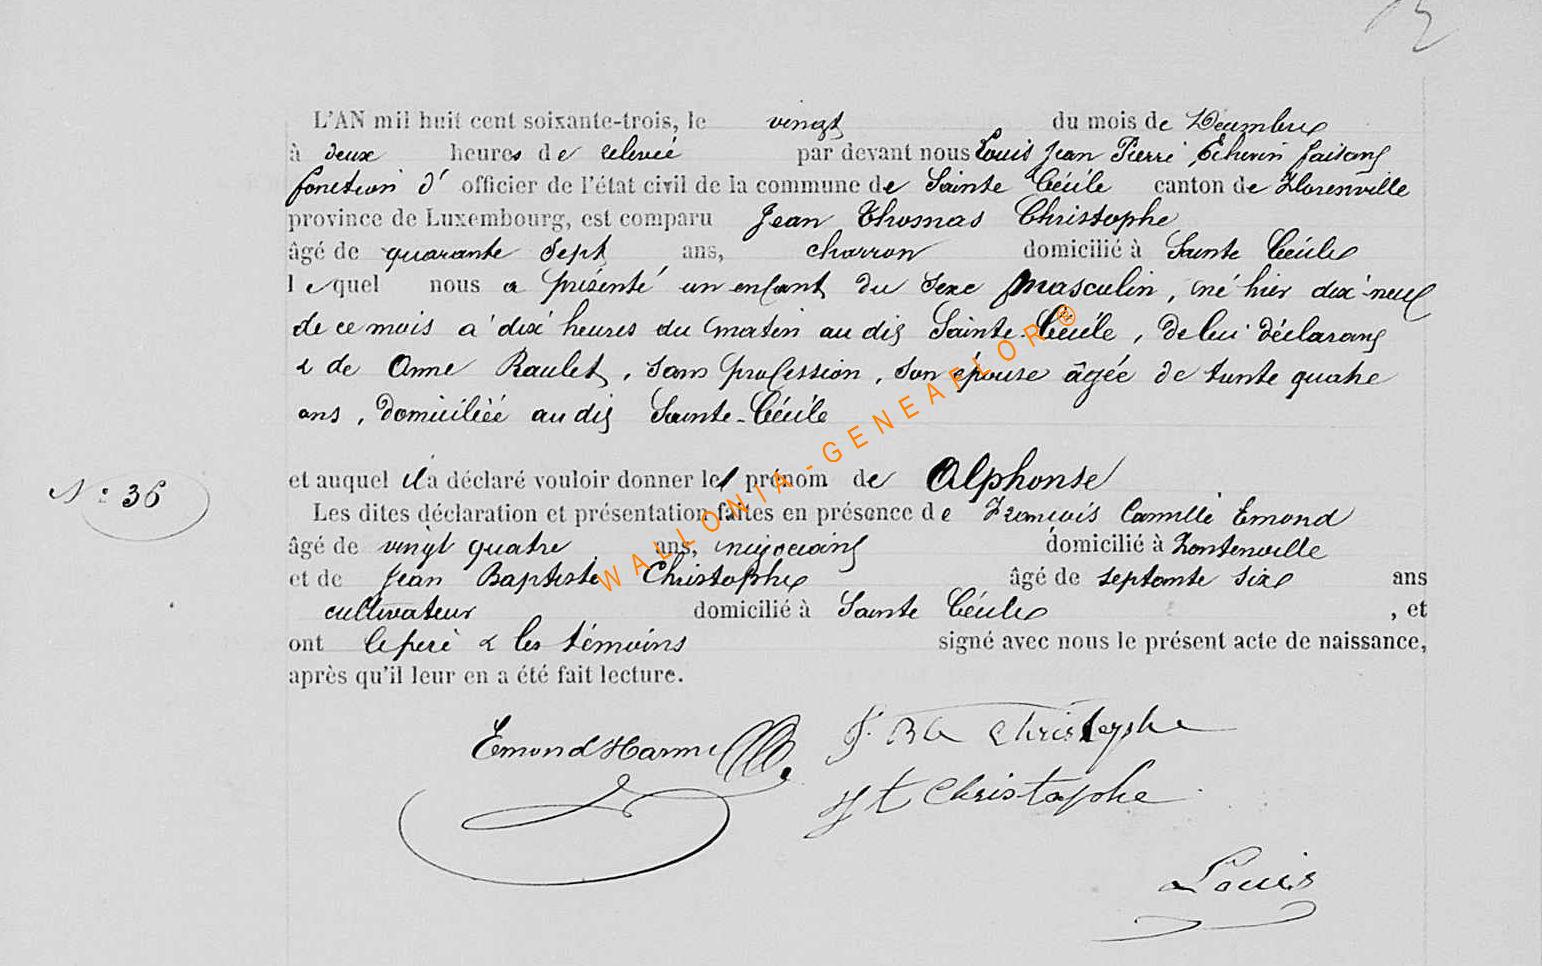 L'AN mil huit cent soixante-trois, le vingt du mois de Décembre
à deux heures de relevée par devant nous Louis Jean Pierre Echevin faisant
fonction d' officier de l'état civil de la commune de Sainte Cécile canton de Florenville
province de Luxembourg, est comparu Jean Thomas Christophe
âgé de quarante sept ans, charron domicilié à Sainte Cécile
lequel nous a présenté un enfant du sexe masculin, né hier dix-neuf
de ce mois à dix heures du matin au dit Sainte-Cécile, de lui déclarant
& de Anne Raulet, sans profession, son épouse âgée de trente quatre
ans, domiciliée au dit Sainte-Cécile
et auquel il a déclaré vouloir donner le prénom de Alphonse
N° 36
Les dites déclaration et présentation faites en présence de François Camille Emond
âgé de vingt quatre ans, négociant domicilié à Fontenoille
et de Jean Baptiste Christophe âgé de septante six ans
cultivateur domicilié à Sainte Cécile , et
ont le père & les témoins signé avec nous le présent acte de naissance,
après qu'il leur en a été fait lecture.
Emond J. Bte Christophe
Jt Christophe
Louis
WALLONIA-GENEAFLOR®